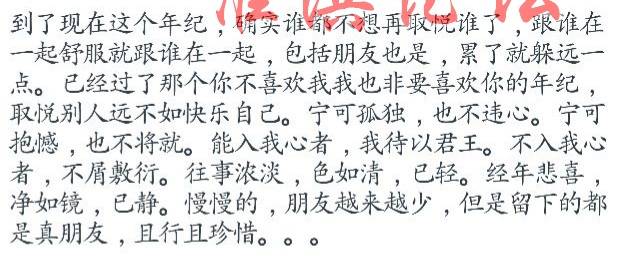 到了现在这个年纪，确实谁都不想再取悦谁了，跟谁在
一起舒服就跟谁在一起，包括朋友也是，累了就躲远一
点。已经过了那个你不喜欢我我也非要喜欢你的年纪，
取悦别人远不如快乐自己。宁可孤独，也不违心。宁可
抱憾，也不将就。能入我心者，我待以君王。不入我心
者，不屑敷衍。往事浓淡，色如清，已轻。经年悲喜，
净如镜，已静。慢慢的，朋友越来越少，但是留下的都
是真朋友，且行且珍惜。。。